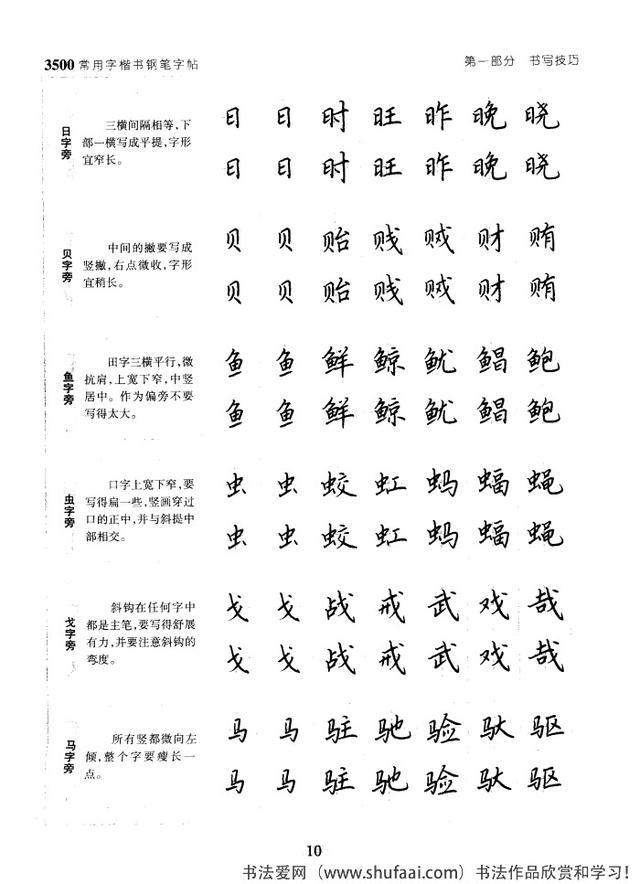 3500常用字楷书钢笔字帖
第一部分 书写技巧
日字旁
三横间隔相等，下
部一横写成平提，字形
宜窄长。
日 日 时 旺 昨 晚 晓
日 日 时 旺 昨 晚 晓
贝字旁
中间的撇要写成
竖撇，右点微收，字形
宜稍长。
贝 贝 贻 贱 贼 财 贿
贝 贝 贻 贱 贼 财 贿
鱼字旁
田字三横平行，微
抗肩，上宽下窄，中竖
居中。作为偏旁不要
写得太大。
鱼 鱼 鲜 鲸 鱿 鲳 鲍
鱼 鱼 鲜 鲸 鱿 鲳 鲍
虫字旁
口字上宽下窄，要
写得扁一些，竖画穿过
口的正中，并与斜提中
部相交。
虫 虫 蛟 虹 蚂 蝠 蝇
虫 虫 蛟 虹 蚂 蝠 蝇
戈字旁
斜钩在任何字中
都是主笔，要写得舒展
有力，并要注意斜钩的
弯度。
戈 戈 战 戒 武 戏 哉
戈 戈 战 戒 武 戏 哉
马字旁
所有竖都微向左
倾，整个字要瘦长一
点。
马 马 驻 驰 验 驮 驱
马 马 驻 驰 验 驮 驱
10
书法爱网（www.shufaai.com）书法作品欣赏和学习！